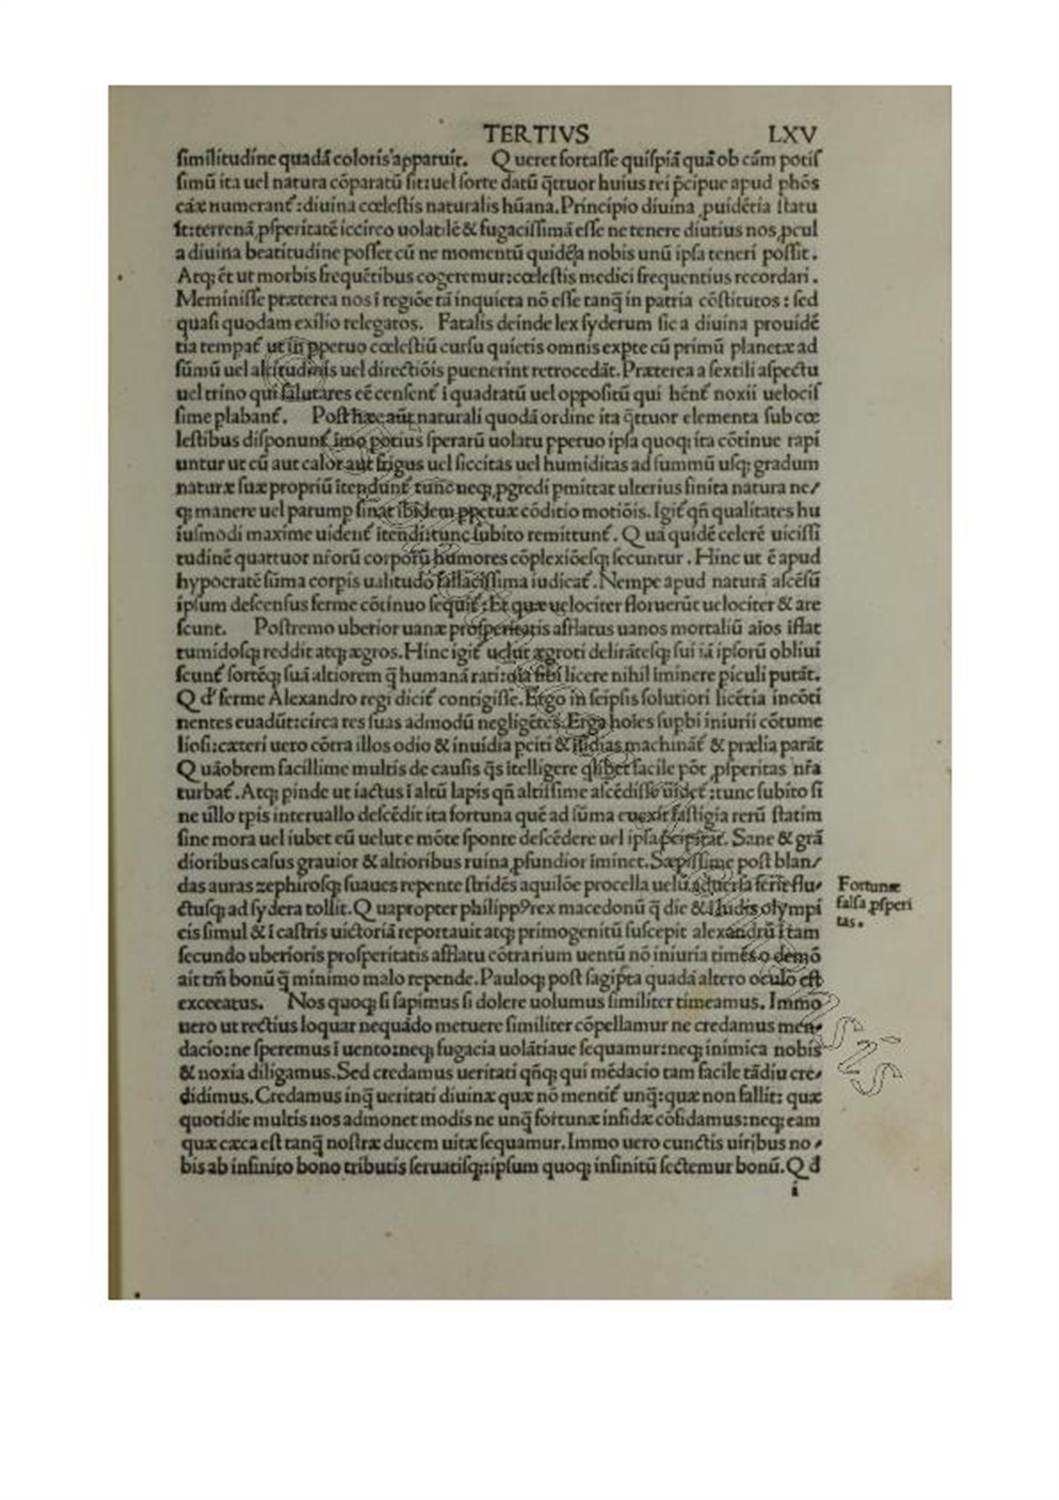 TERTIVS LXV
similitudine quadã coloris apparuit. Queret fortasse quispiã quã ob cãm potis
simũ ita uel natura cõparatũ sit: uel sorte datũ q̃ttuor huius rei p̃cipue apud phõs
cãæ numerant̃: diuina cœlestis naturalis hũana. Principio diuina ꝓuidẽtia statu
it: terrenã ꝓsperitatẽ iccirco uolatilẽ & fugacissimã esse ne tenere diutius nos ꝓcul
a diuina beatitudine posset cũ ne momentũ quidẽ a nobis unũ ipsa teneri possit.
Atq; ẽt ut morbis frequẽtibus cogeremur: cœlestis medici frequentius recordari.
Meminisse præterea nos ĩ regiõe tã inquieta nõ esse tanq̃ in patria cõstitutos: sed
quasi quodam exilio relegatos. Fatalis deinde lex syderum sic a diuina prouidẽ
tia tempat̃ ut in ꝑpetuo cœlestiũ cursu quietis omnis expte cũ primũ planetæ ad
sũmũ uel altitudinis uel directiõis puenerint retrocedãt. Præterea a sextili aspectu
uel trino qui salutares eẽ censent̃ ĩ quadratũ uel oppositũ qui hẽnt̃ noxii uelocis
sime plabant̃. Post hæc aũt naturali quodã ordine ita q̃ttuor elementa sub cœ
lestibus disponunt̃ imo potius sperarũ uolatu ꝑpetuo ipsa quoq; ita cõtinue rapi
untur ut cũ aut calor aut frigus uel siccitas uel humiditas ad summũ usq; gradum
naturæ suæ propriũ ĩtendunt̃ tunc neq; ꝓgredi pmittat ulterius finita natura ne/
q; manere uel parump sinat ibidem ꝑpetuæ cõditio motiõis. Igit̃ qñ qualitates hu
iusmodi maxime uident̃ ĩtendi: tunc subito remittunt̃. Quã quidẽ celerẽ uicissi
tudinẽ quattuor nr̃orũ corporũ humores cõplexiõesq; secuntur. Hinc ut ẽ apud
hypocratẽ sũma corpis ualitudo fallacissima iudicat̃. Nempe apud naturã ascẽsũ
ipsum descensus ferme cõtinuo sequit̃: Et quæ uelociter floruerũt uelociter & are
scunt. Postremo uberior uanæ prosperitatis afflatus uanos mortaliũ aĩos ĩflat
tumidosq; reddit atq; ægros. Hinc igit̃ uelut ægroti delirãtesq; sui iã ipsorũ obliui
scunt̃ sortẽq; suã altiorem q̃ humanã rati: oĩa sibi licere nihil ĩminere piculi putãt.
Q d̃ ferme Alexandro regi dicit̃ contigisse. Ergo in seipsis solutiori licẽtia incõti
nentes euadũt: circa res suas admodũ negligẽtes. Erga hoĩes supbi iniurii cõtume
liosi: cæteri uero cõtra illos odio & inuidia pciti & ĩsidias machinãt̃ & prælia parãt
Quãobrem facillime multis de causis q̃s ĩtelligere q̃libet facile põt ꝓsperitas nr̃a
turbat̃. Atq; pinde ut iactus ĩ altũ lapis qñ altissime ascẽdisse uidet̃: tunc subito si
ne ullo tpis interuallo descẽdit ita fortuna quẽ ad sũma euexit fastigia rerũ statim
sine mora uel iubet eũ uelut e mõte sponte descẽdere uel ipsa pcipitat. Sane & grã
dioribus casus grauior & altioribus ruina ꝓfundior ĩminet. Sæpissime post blan/
das auras zephirosq; suaues repente stridẽs aquilõe procella uelũ aduersa ferit flu/
ctusq; ad sydera tollit. Quapropter philippꝰ rex macedonũ q̃ die & ludis olympi
cis simul & ĩ castris uictoriã reportauit atq; primogenitũ suscepit alexandrũ ĩ tam
secundo uberioris prosperitatis afflatu cõtrarium uentũ nõ iniuria timẽs o demõ
ait tm̃ bonũ q̃ minimo malo repende. Pauloq; post sagip̃ta quadã altero oculo est
excecatus. Nos quoq; si sapimus si dolere uolumus similiter timeamus. Immo
uero ut rectius loquar nequãdo metuere similiter cõpellamur ne credamus men/
dacio: ne speremus ĩ uento: neq; fugacia uolãtiaue sequamur: neq; inimica nobis
& noxia diligamus. Sed credamus ueritati qñq; qui mẽdacio tam facile tãdiu cre/
didimus. Credamus inq̃ ueritati diuinæ quæ nõ mentit̃ unq̃: quæ non fallit: quæ
quotidie multis nos admonet modis ne unq̃ fortunæ infidæ cõfidamus: neq; eam
quæ cæca est tanq̃ nostræ ducem uitæ sequamur. Immo uero cunctis uiribus no/
bis ab infinito bono tributis seruatisq;: ipsum quoq; infinitũ sectemur bonũ. Q d̃
i
Fortunæ
falsa ꝓsperi
tas.